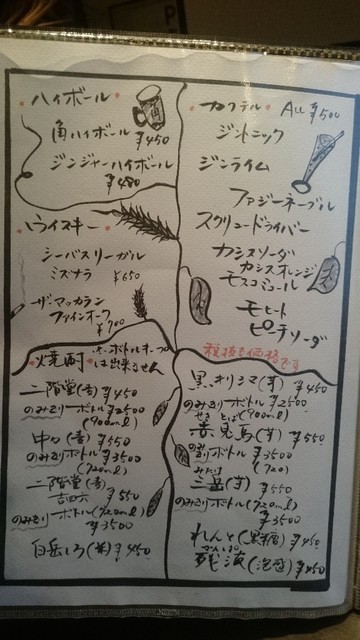 ハイボール
角ハイボール
¥450
ジンジャーハイボール
¥480
ウイスキー
シーバスリーガル
ミズナラ ¥650
ザ・マッカラン
ファインオーク
¥700
カクテル All ¥500
ジントニック
ジンライム
ファジーネーブル
スクリュードライバー
カシスソーダ
カシスオレンジ
モスコミュール
モヒート
ピーチソーダ
税抜き価格です
焼酎 ※ボトルキープ
は出来ません
二階堂(麦) ¥450
のみきりボトル ¥2500
(900ml)
中々(麦) ¥550
のみきりボトル ¥3500
(720ml)
二階堂(麦)
吉四六 ¥550
のみきりボトル(720ml)
¥3500
白岳しろ(米) ¥450
黒キリシマ(芋) ¥450
のみきりボトル ¥2500
(900ml)
赤兎馬(芋) ¥550
のみきりボトル ¥3500
(720)
三岳(芋) ¥550
のみきりボトル(720ml)
¥3500
れんと(黒糖) ¥450
残波(泡盛) ¥450